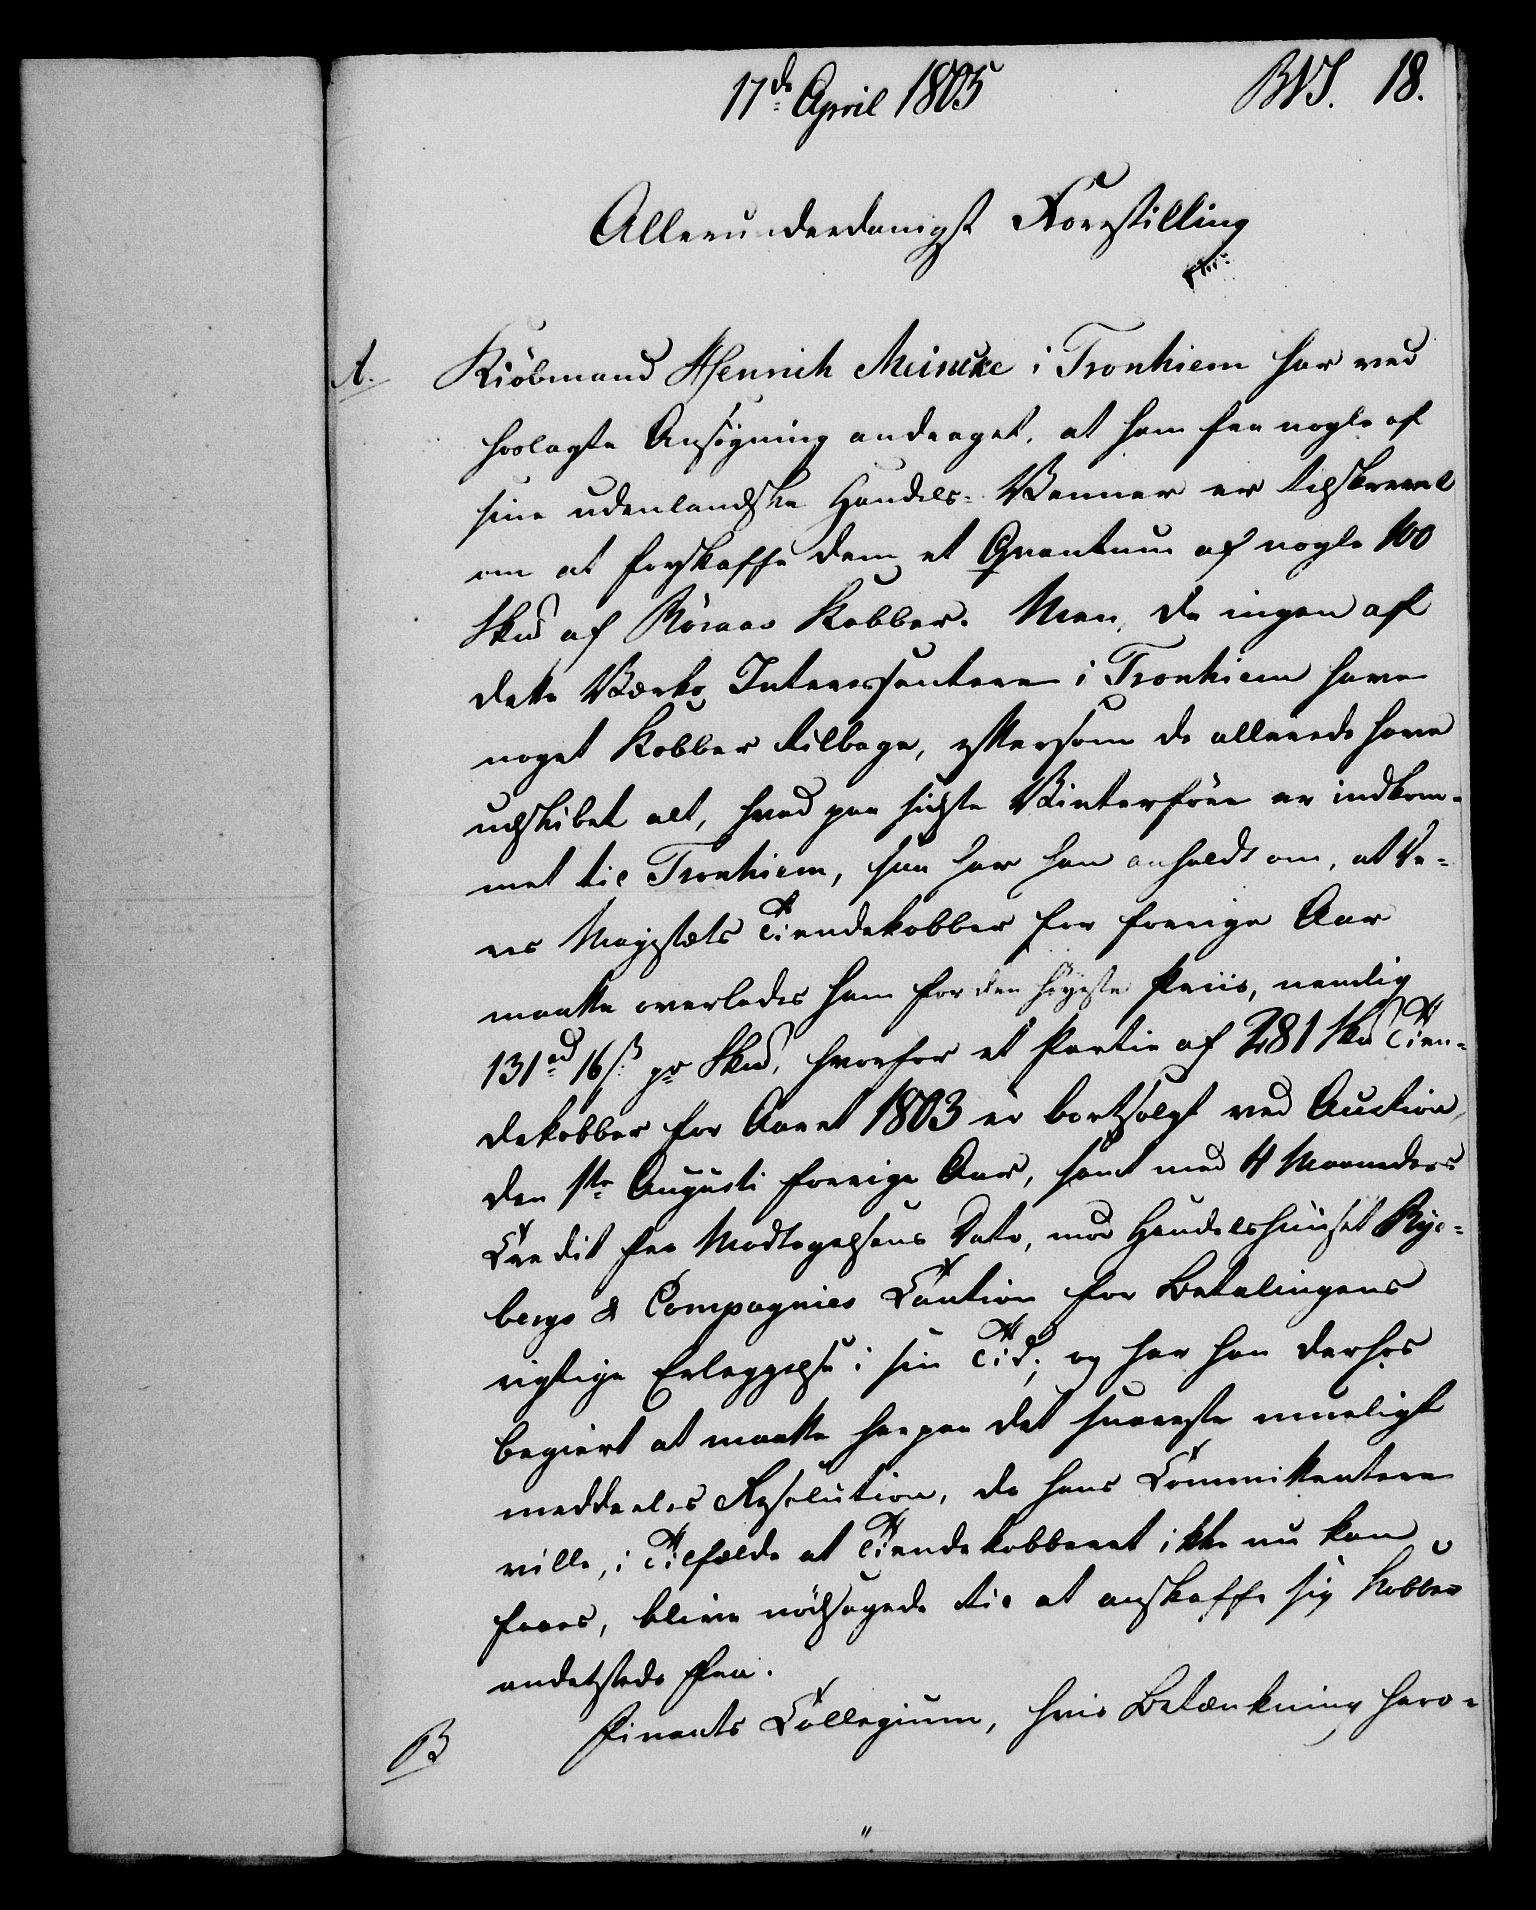 17de April 1805
BVS. 18.
Allerunderdanigst Forestilling
A. Kiöbmand Henrich Meincke i Tronhiem har ved
hoslagte Ansögning andraget, at ham fra nogle af
sine udenlandske Handels-Venner er tilskrevet
om at forskaffe dem et Qvantum af nogle 100
Skd af Röraas Kobber. Men, da ingen af
dette Værks Interessentere i Tronhiem have
noget Kobber tilbage, eftersom de allerede have
udskibet alt, hvad paa sidste Vinterföre er indkom-
met til Tronhiem, saa har han anholdt om, at De-
res Majestæts Tiendekobber for forrige Aar
maatte overlades ham for den höyeste Priis, nemlig
131rd 16s pr Skd, hvorfor et Partie af 281 Skd Tien-
dekobber for Aaret 1803 er bortsolgt ved Auction
den 1te Augusti forrige Aar, samt med 4 Maaneders
Credit fra Modtagelsens Dato, mod Handelshuuset Ry-
bergs & Compagnies Caution for Betalingens
rigtige Erlæggelse i sin Tid; og har han derhos
begiert at maatte herpaa det snareste mueligt
meddeeles Resolution, da hans Committentere
ville, i Tilfælde at Tiendekobberet ikke nu kan
faaes, blive nödsagede til at anskaffe sig Kobber
andetsteds fra.
B Finants Collegium, hvis Betænkning hero-